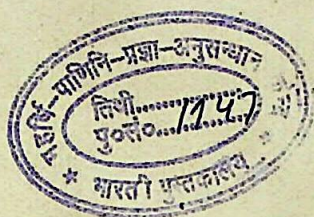 महर्षि-पाणिनि-प्रज्ञा-अनुसन्धान
तिथी............
पु०सं०... 1147
* भारती पुस्तकालय *